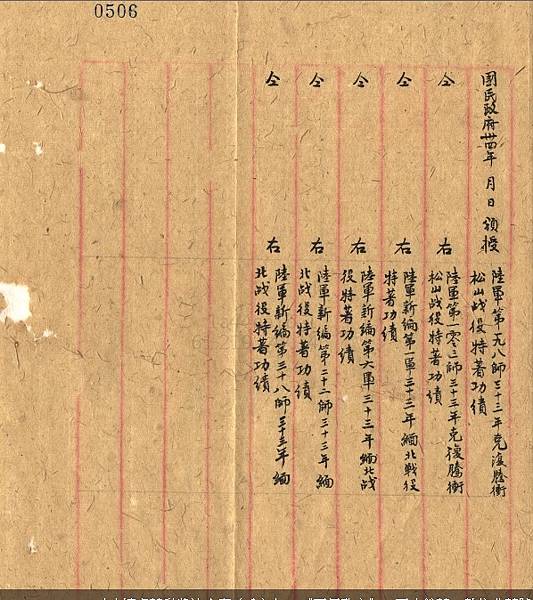 0506
國民政府卅四年 月 日 頒授
陸軍第一九八師三十三年克復騰衝
松山战役特著功績
仝 右
陸軍第一零三師三十三年克復騰衝
松山战役特著功績
仝 右
陸軍新編第一軍三十三年緬北戰役
特著功績
仝 右
陸軍新編第六軍三十三年緬北战
役特著功績
仝 右
陸軍新編第二十二師三十三年緬
北战役特著功績
仝 右
陸軍新編第三十八師三十三年緬
北战役特著功績